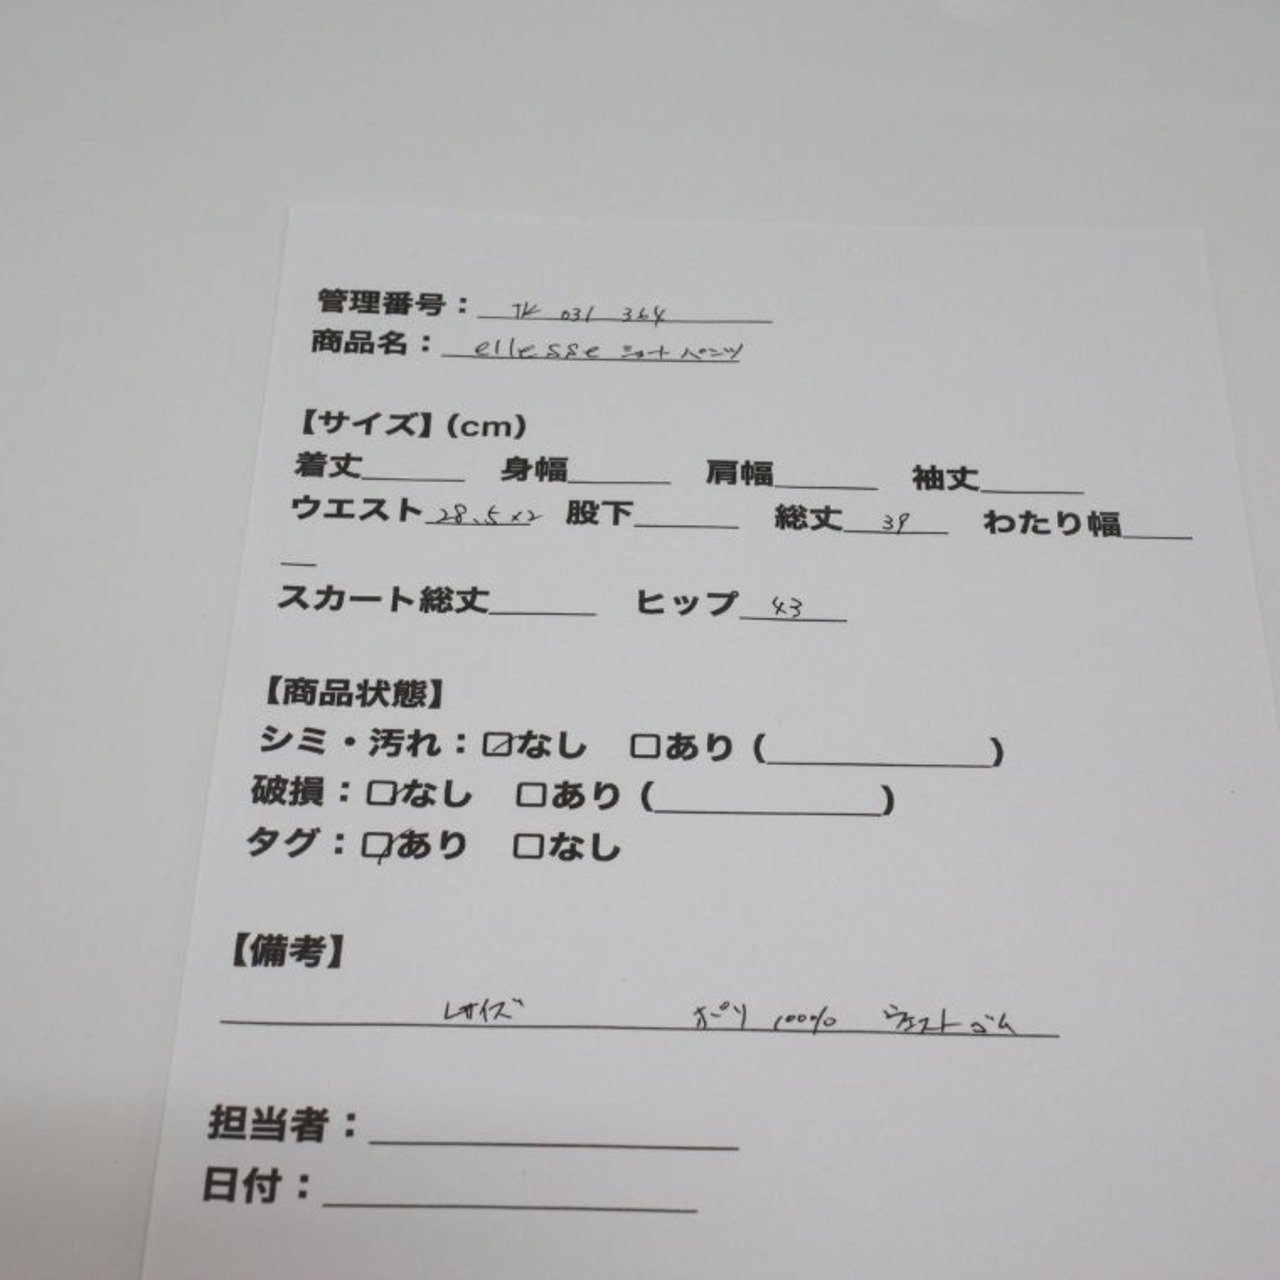 管理番号：TK 031 364
商品名：ellesse ショートパンツ
【サイズ】(cm)
着丈______ 身幅______ 肩幅______ 袖丈______
ウエスト 28.5×2 股下______ 総丈 39 わたり幅____
__
スカート総丈______ ヒップ 43
【商品状態】
シミ・汚れ：☑なし □あり (______________)
破損：☑なし □あり (______________)
タグ：☑あり □なし
【備考】
Lサイズ ポリ 100% ウエストゴム
担当者：______________________
日付：______________________